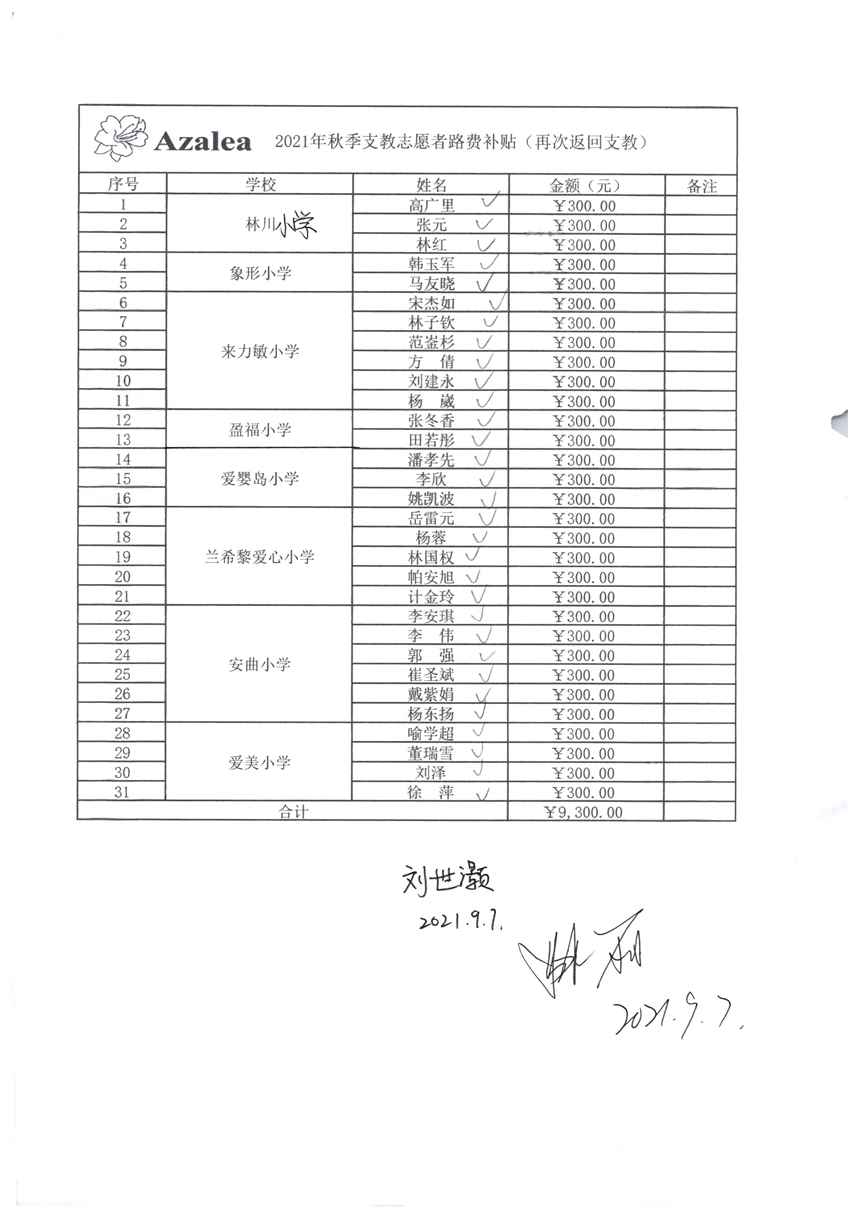 Azalea 2021年秋季支教志愿者路费补贴（再次返回支教）
序号 学校 姓名 金额（元） 备注
1 林川小学 高广里 ¥300.00
2 张元 ¥300.00
3 林红 ¥300.00
4 象形小学 韩玉军 ¥300.00
5 马友晓 ¥300.00
6 来力敏小学 宋杰如 ¥300.00
7 林子钦 ¥300.00
8 范崟杉 ¥300.00
9 方 倩 ¥300.00
10 刘建永 ¥300.00
11 杨 崴 ¥300.00
12 盈福小学 张冬香 ¥300.00
13 田若彤 ¥300.00
14 爱婴岛小学 潘孝先 ¥300.00
15 李欣 ¥300.00
16 姚凯波 ¥300.00
17 兰希黎爱心小学 岳雷元 ¥300.00
18 杨蓉 ¥300.00
19 林国权 ¥300.00
20 帕安旭 ¥300.00
21 计金玲 ¥300.00
22 安曲小学 李安琪 ¥300.00
23 李 伟 ¥300.00
24 郭 强 ¥300.00
25 崔圣斌 ¥300.00
26 戴紫娟 ¥300.00
27 杨东扬 ¥300.00
28 爱美小学 喻学超 ¥300.00
29 董瑞雪 ¥300.00
30 刘泽 ¥300.00
31 徐 萍 ¥300.00
合计 ¥9,300.00
刘世灏
2021.9.7.
2021.9.7.